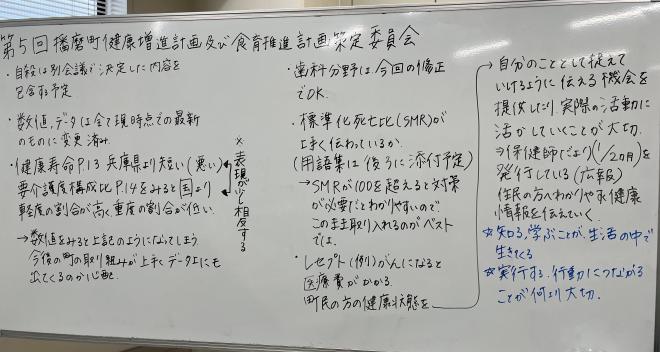 第5回播磨町健康増進計画及び食育推進計画策定委員会
・自殺は別会議で決定した内容を
包含する予定
・数値、データは全て現時点での最新
のものに変更済み.
・健康寿命P.13 兵庫県より短い(悪い)
要介護度構成比P.14をみると国より
軽度の割合が高く重度の割合が低い.
※表現が少し相反する
→数値をみると上記のようになってしまう
今後の町の取り組みが上手くデータ上にも
出てくるのか心配.
・歯科分野は、今回の修正
でOK.
・標準化死亡比(SMR)が
上手く伝わっているか.
(用語集は後ろに添付予定)
→SMRが100を超えると対策
が必要だとわかりやすいので
このまま取り入れるのがベスト
では.
・レセプト(例)がんになると
医療費がかかる.
町民の方の健康状態を
→自分のこととして捉えて
いけるように伝える機会を
提供したり、実際の活動に
活かしていくことが大切.
⇒保健師だより(1/2カ月)を
発行している(広報)
住民の方へわかりやすく健康
情報を伝えていく.
☆知る、学ぶことが、生活の中で
生きてくる
☆実行する.行動につながる
ことが何より大切.